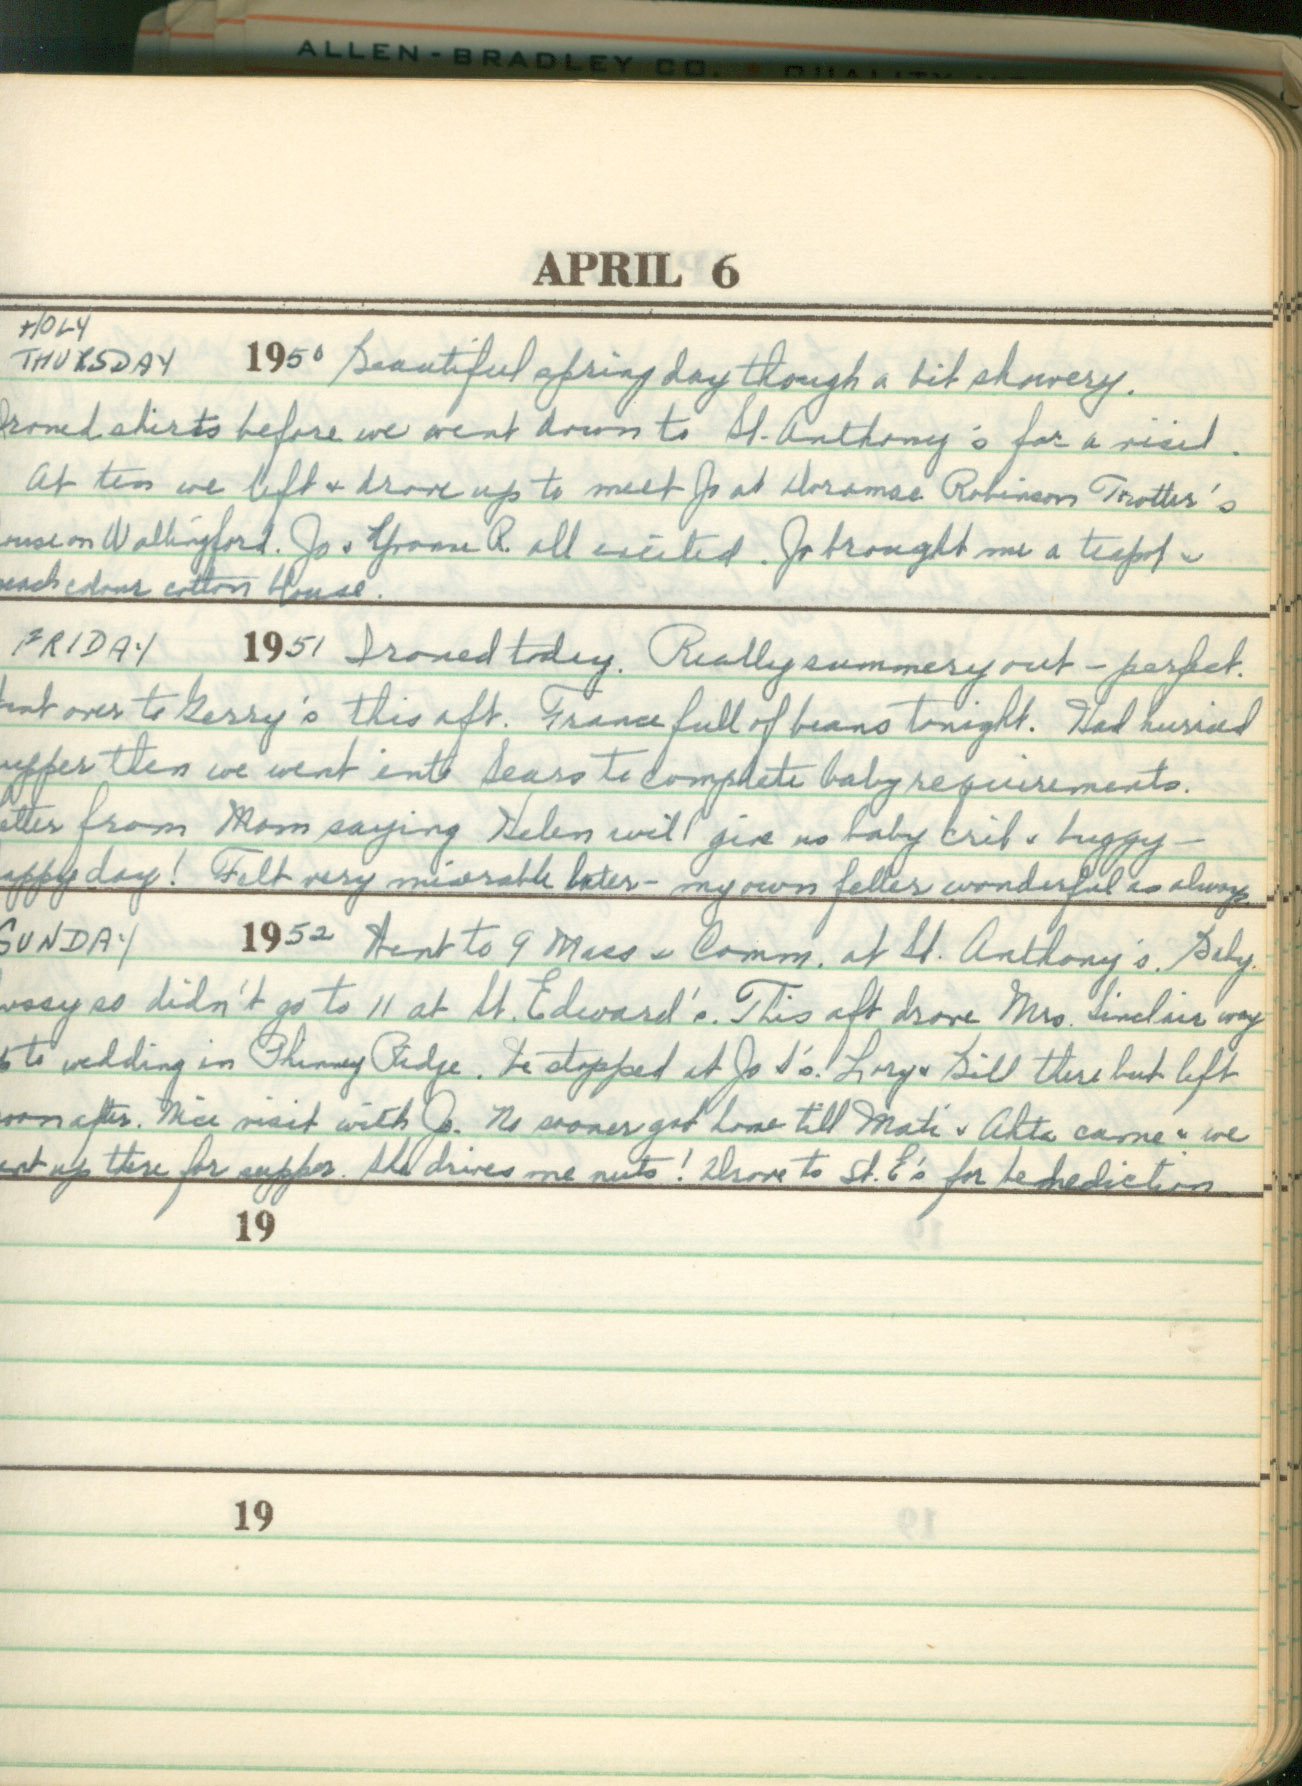 ALLEN-BRADLEY CO. QUALITY
APRIL 6
HOLY
THURSDAY 1950 Beautiful spring day though a bit showery.
Ironed shirts before we went down to St. Anthony's for a visit.
At ten we left & drove up to meet Jo at Robinson Trotter's
house on Wallingford. Jo & Yvonne R. all excited. Jo brought me a teapot &
peach colour cotton blouse.
FRIDAY 1951 Ironed today. Really summery out - perfect.
Went over to Gerry's this aft. France full of beans tonight. Had hurried
supper then we went into Sears to complete baby requirements.
Letter from Mom saying Helen will give us baby crib & buggy -
happy day! Felt very miserable later - my own feller wonderful as always
SUNDAY 1952 Went to 9 Mass & Comm. at St. Anthony's. Baby
fussy so didn't go to 11 at St. Edward's. This aft drove Mrs. Sinclair way
to wedding in Phinney Ridge. We stopped at Jo S's. Lory & Bill there but left
soon after. Nice visit with Jo. No sooner got home till Mati & Ahta came & we
went up there for supper. She drives me nuts! Drove to St. E's for benediction
19
19